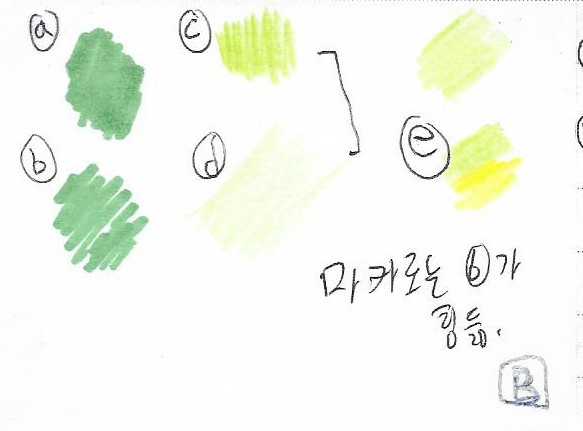 ⓐ ⓒ
ⓑ ⓓ ⓔ
마카로는 ⓑ가
힘듦.
B